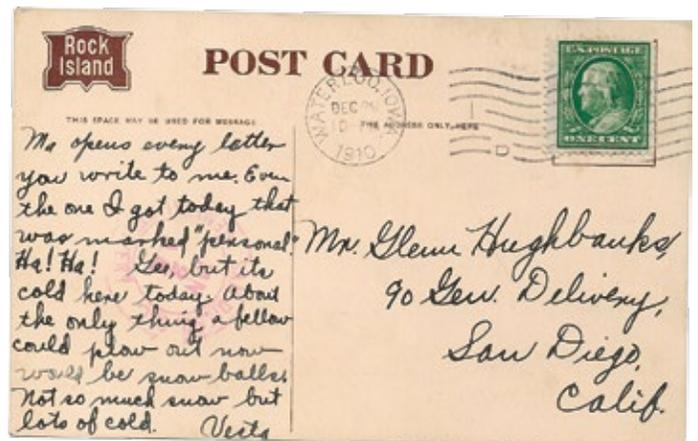 Rock
Island
POST CARD
THIS SPACE MAY BE USED FOR MESSAGE
THE ADDRESS ONLY, HERE
WATERLOO, IOWA
DEC
10
1910
D
U.S. POSTAGE
ONE CENT
Ma opens every letter
you write to me. Even
the one I got today that
was marked "personal"
Ha! Ha! Gee, but its
cold here today. About
the only thing a fellow
could plow out now
would be snow balls.
Not so much snow but
lots of cold. Vesta
Mr. Glenn Hughbanks,
90 Gen. Delivery,
San Diego,
Calif.